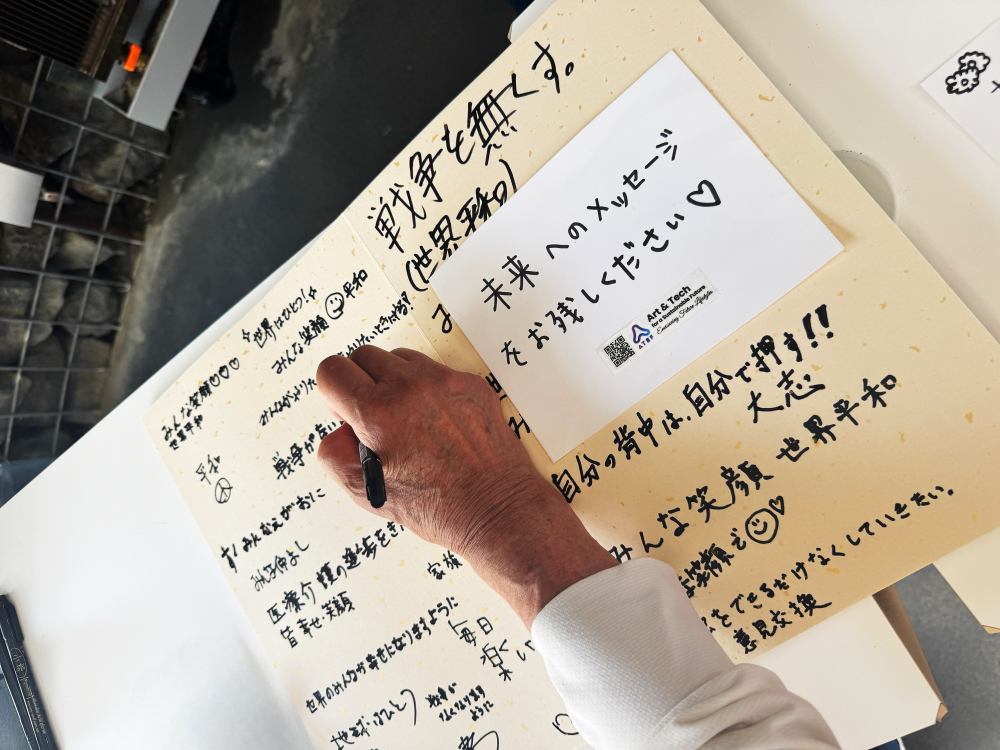 戦争を無くす。
(世界平和)
未来へのメッセージ
をお残しください♡
Art & Tech
for a Sustainable Future
自分の背中は、自分で押す!!
大志
みんな笑顔 世界平和
笑顔で
をできるだけなくしていきたい。
意見交換
世界はひとつ!
みんな笑顔 平和
みんな笑顔♡♡♡
世界平和
平和
戦争が
みんなえがおに
みんな仲よし
医療介護の進歩を
皆幸せ・笑顔
家族
世界のみんなが幸せになりますように
毎日
楽しい
地球・はひとつ
戦争が
なくなります
ように